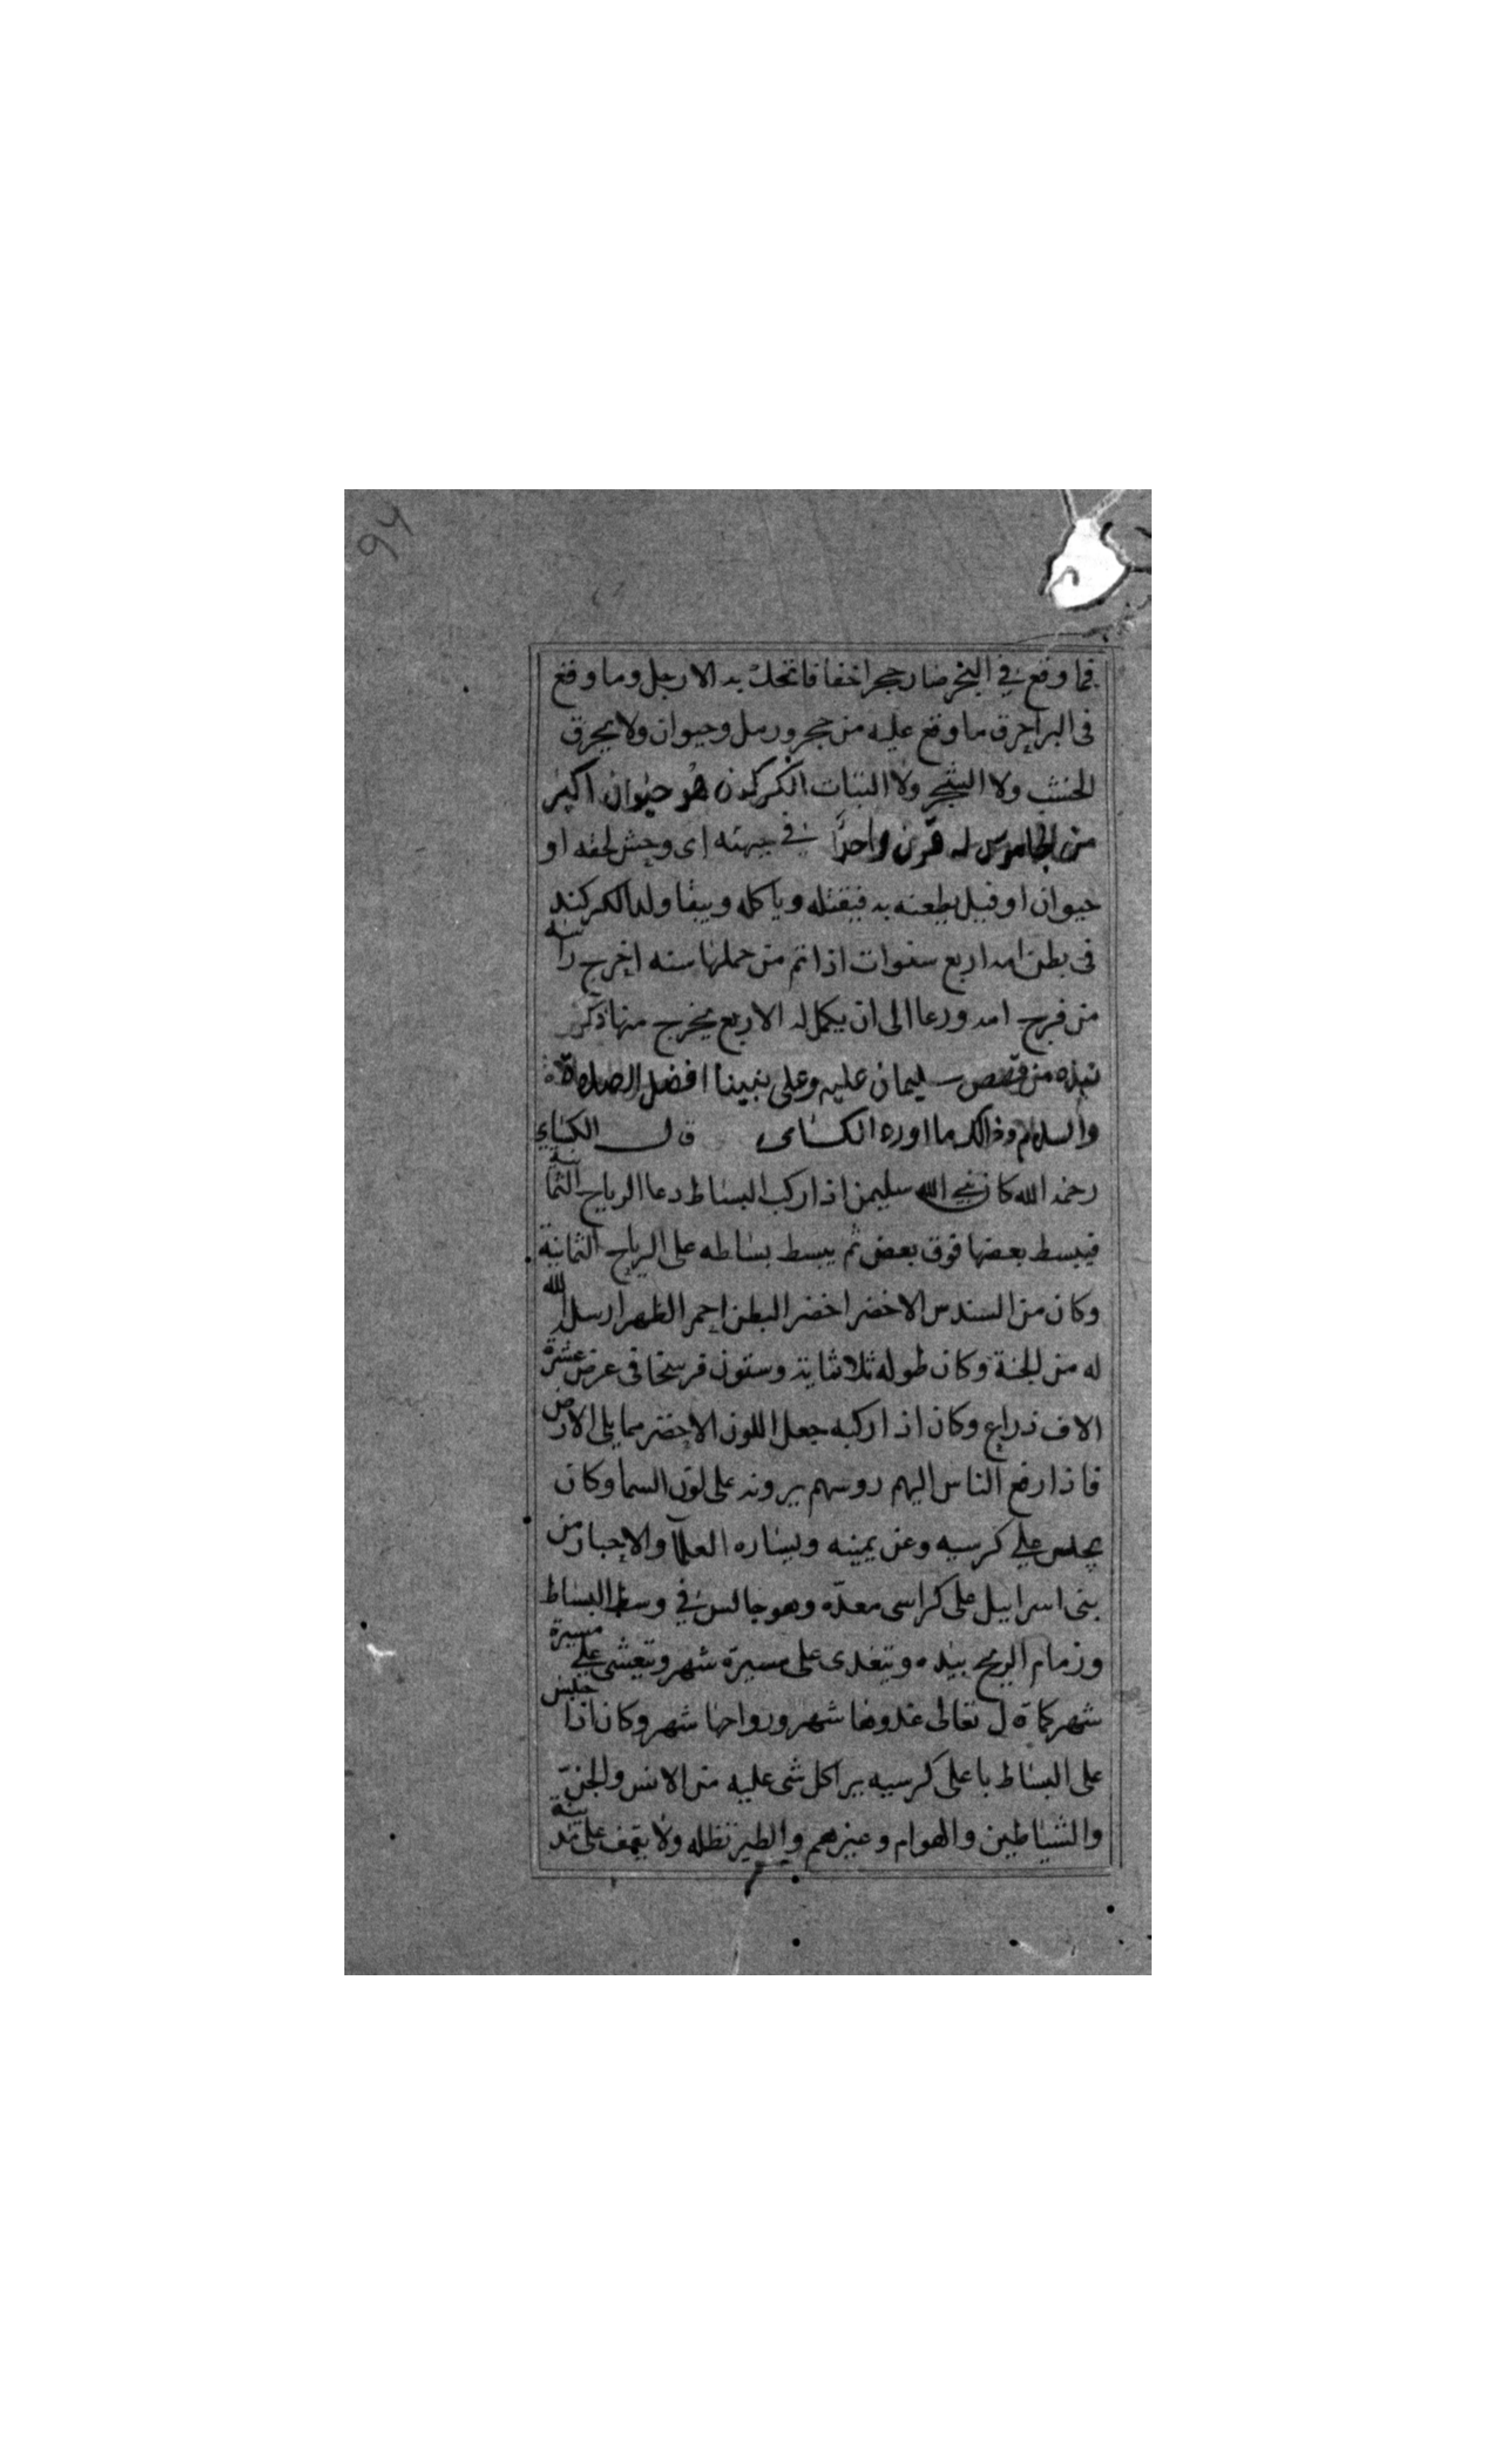 94
فما وقع في البحر صار حجرا خفافا تحك به الارجل وما وقع
في البر احرق ما وقع عليه من حجر ورمل وحيوان ولا يحرق
الخشب ولا الشجر ولا النبات الكركدن هو حيوان اكبر
من الجاموس له قرن واحدا في جبهته اى وحش لحقه او
حيوان او فيل يطعنه به فيقتله وياكله ويبقا ولد الكركند
فى بطن امه اربع سنوات اذا تم من حملها سنه اخرج راسه
من فرج امه ورعا الى ان يكمل له الاربع يخرج منها ذكر
نبذه من قصص سليمان عليه وعلى نبينا افضل الصلاة
والسلام وذالك ما اورده الكساى قال الكساي
رحمه الله كان نبي الله سليمن اذا ركب البساط دعا الرياح الثمانية
فيبسط بعضها فوق بعض ثم يبسط بساطه على الرياح الثمانية
وكان من السندس الاخضر اخضر البطن احمر الظهر ارسله الله
له من الجنة وكان طوله ثلاثماية وستون فرسخا فى عرض عشرة
الاف ذراع وكان اذا ركبه جعل اللون الاخضر مما يلى الارض
فاذا رفع الناس اليهم روسهم يرونه على لون السما وكان
يجلس على كرسيه وعن يمينه ويساره العلما والاحبار من
بنى اسرايل على كراسى معده وهو جالس في وسط البساط
وزمام الريح بيده ويتغدى على مسيرة شهر ويتعشى على مسيرة
شهر كما قال تعالى غدوها شهر ورواحها شهر وكان اذا جلس
على البساط باعلى كرسيه يرا كل شى عليه من الانس والجن
والشياطين والهوام وغيرهم والطير تظله ولا يقف على